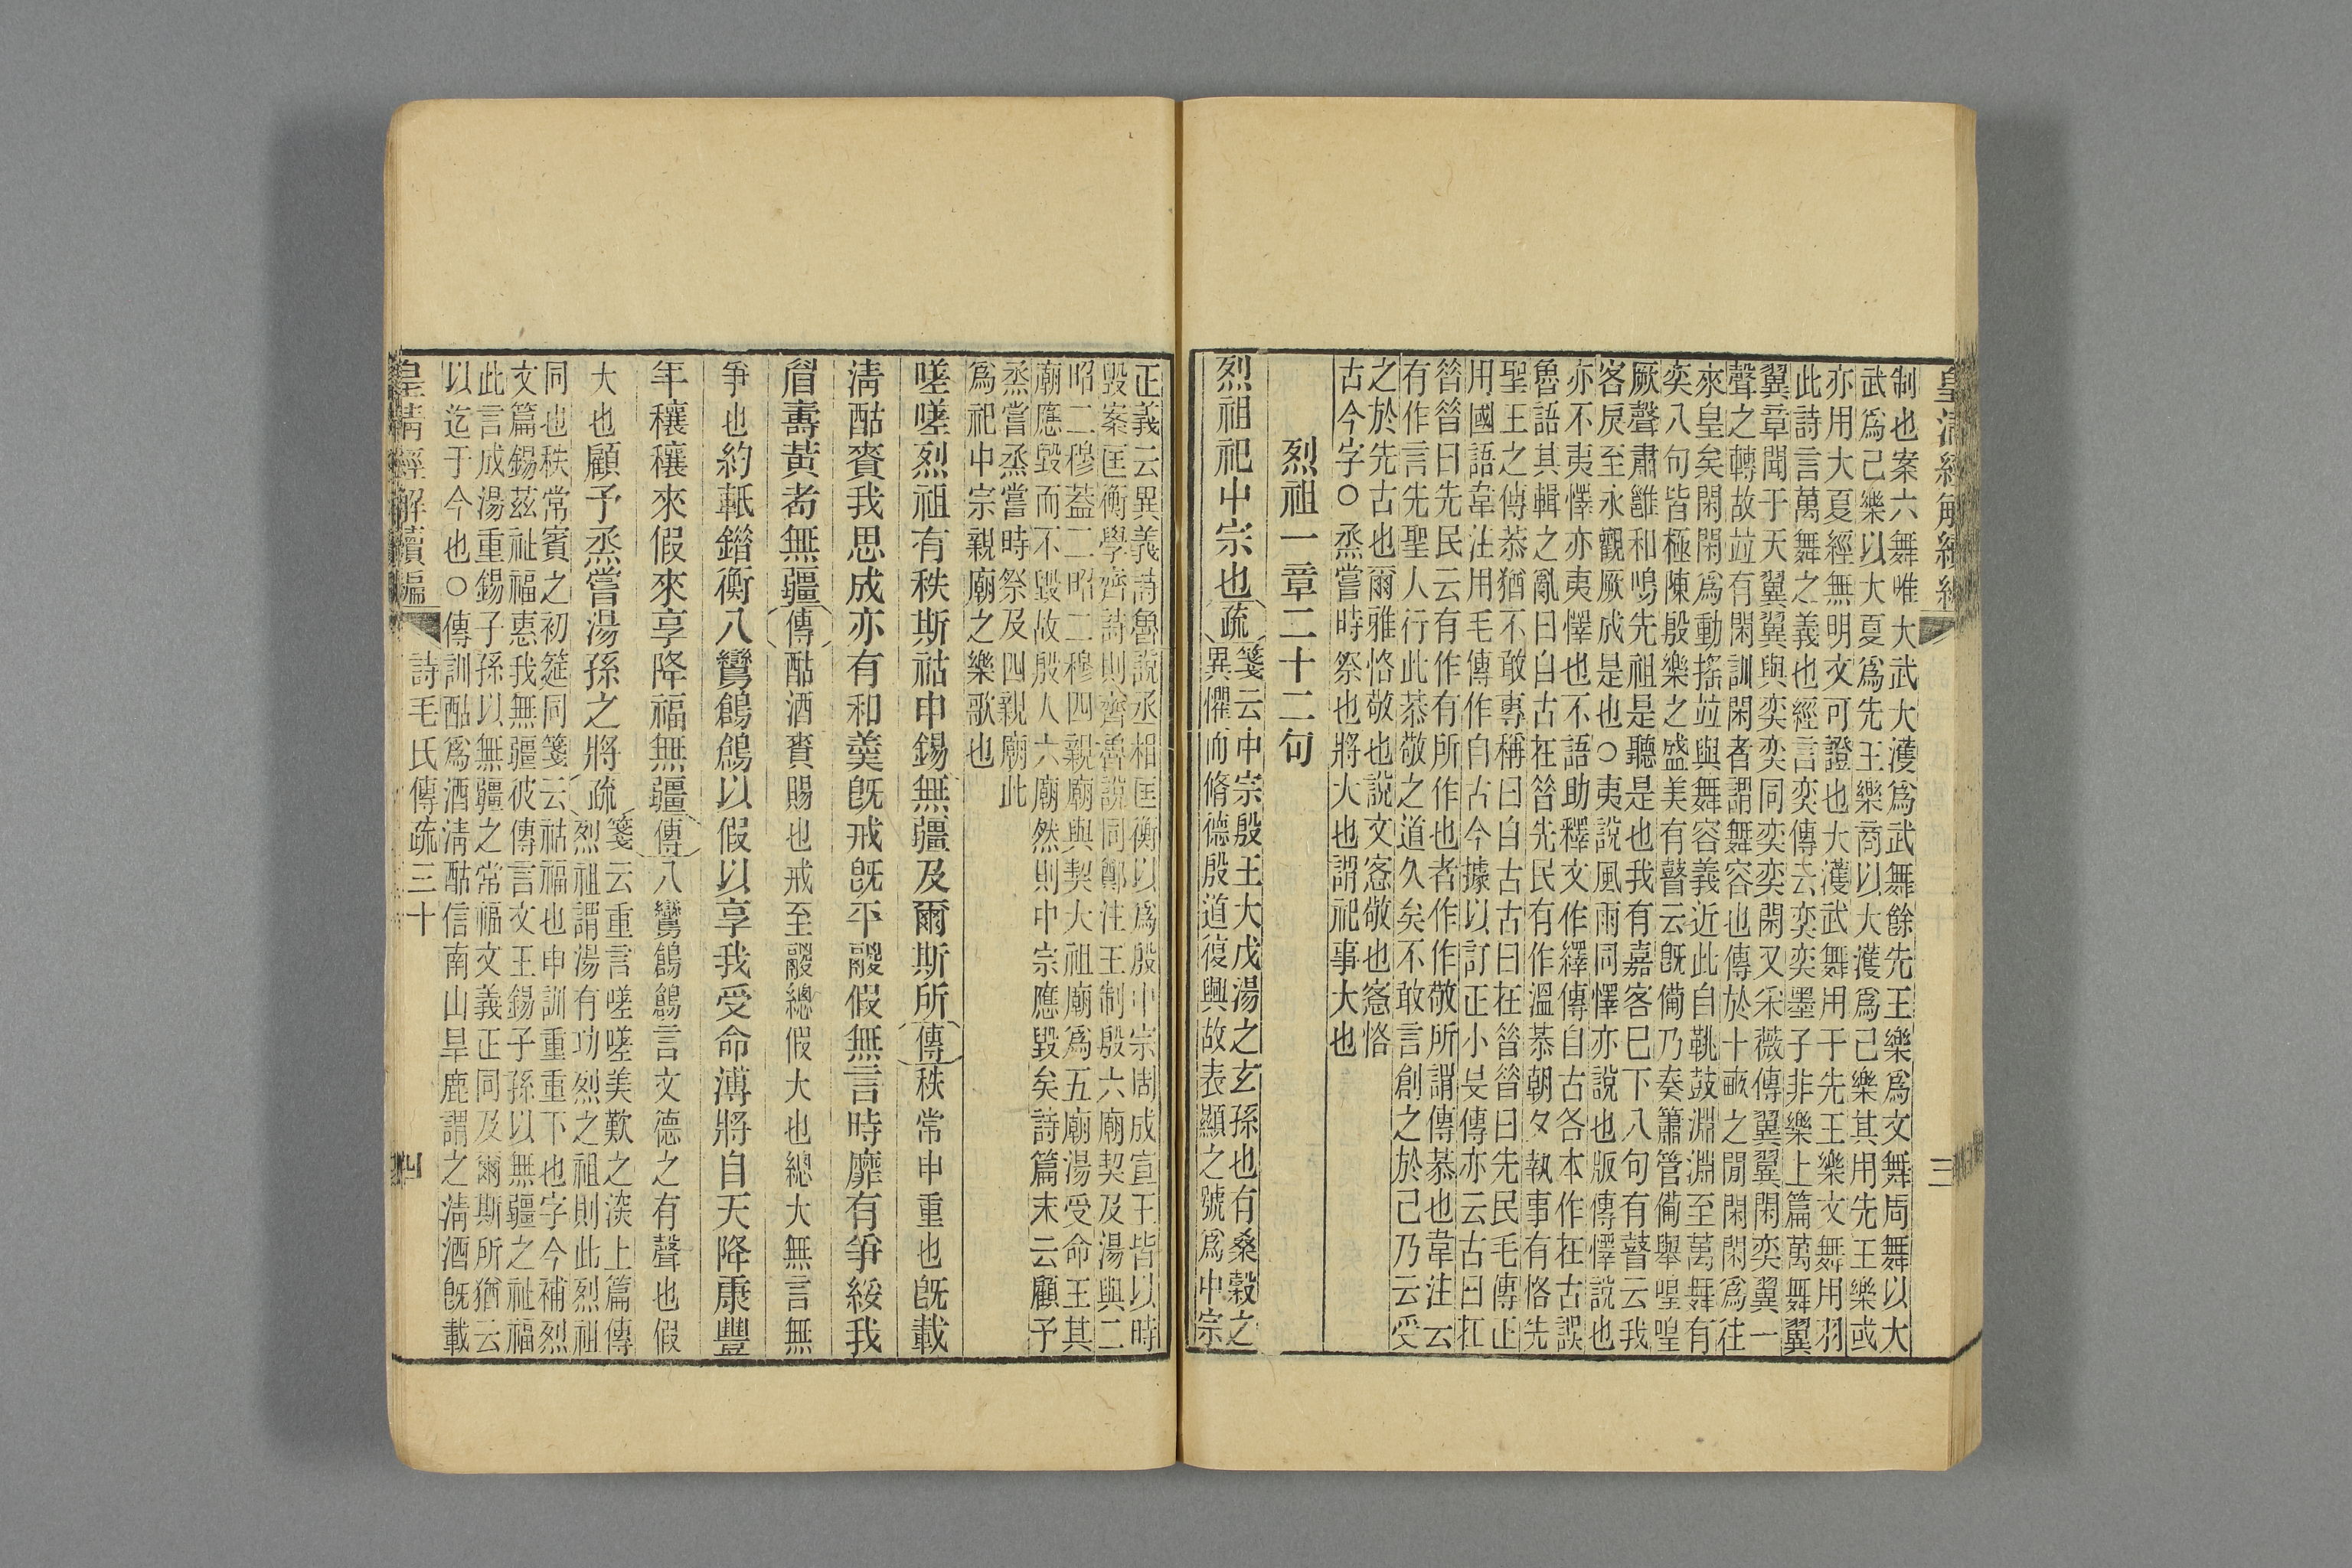 皇清經解續編
三
制也案六舞唯大武大濩爲武舞餘先王樂爲文舞周舞以大
武爲己樂以大夏爲先王樂商以大濩爲己樂其用先王樂或
亦用大夏經無明文可證也大濩武舞用于先王樂文舞用羽
此詩言萬舞之義也經言奕傳云奕奕墨子非樂上篇萬舞翼
翼章聞于天翼翼與奕奕同奕奕閑又采薇傳翼翼閑奕翼一
聲之轉故竝有閑訓閑者謂舞容也傳於十畝之閒閑閑爲往
來皇矣閑閑爲動搖竝與舞容義近此自鞉鼓淵淵至萬舞有
奕八句皆極陳殷樂之盛美有瞽云旣備乃奏簫管備舉喤喤
厥聲肅雝和鳴先祖是聽是也我有嘉客巳下八句有瞽云我
客戾至永觀厥成是也○夷說風雨同懌亦說也版傳懌說也
亦不夷懌亦夷懌也不語助釋文作繹傳自古各本作在古誤
魯語其輯之亂曰自古在昝先民有作溫恭朝夕執事有恪先
聖王之傳恭猶不敢專稱曰自古古曰在昝昝曰先民毛傳正
用國語韋注用毛傳作自古今據以訂正小旻傳亦云古曰在
昝昝曰先民云有作有所作也者作作敬所謂傳恭也韋注云
有作言先聖人行此恭敬之道久矣不敢言創之於己乃云受
之於先古也爾雅恪敬也說文愙敬也愙恪
古今字○烝嘗時祭也將大也謂祀事大也
烈祖一章二十二句
烈祖祀中宗也疏箋云中宗殷王大戊湯之玄孫也有桑穀之
異懼而脩德殷道復興故表顯之號爲中宗
正義云異義詩魯說丞相匡衡以爲殷中宗周成宣王皆以時
毀案匡衡學齊詩則齊魯說同鄭注王制殷六廟契及湯與二
昭二穆葢二昭二穆四親廟與契大祖廟爲五廟湯受命王其
廟應毀而不毀故殷人六廟然則中宗應毀矣詩篇末云顧予
烝嘗烝嘗時祭及四親廟此
爲祀中宗親廟之樂歌也
嗟嗟烈祖有秩斯祜申錫無疆及爾斯所傳秩常申重也旣載
淸酤賚我思成亦有和羹旣戒旣平鬷假無言時靡有爭綏我
眉壽黃耇無疆傳酤酒賚賜也戒至鬷總假大也總大無言無
爭也約軝錯衡八鸞鶬鶬以假以享我受命溥將自天降康豐
年穰穰來假來享降福無疆傳八鸞鶬鶬言文德之有聲也假
大也顧予烝嘗湯孫之將疏箋云重言嗟嗟美歎之深上篇傳
烈祖謂湯有功烈之祖則此烈祖
同也秩常賓之初筵同箋云祜福也申訓重重下也字今補烈
文篇錫茲祉福惠我無疆彼傳言文王錫子孫以無疆之祉福
此言成湯重錫子孫以無疆之常福文義正同及爾斯所猶云
以迄于今也○傳訓酤爲酒淸酤信南山旱鹿謂之淸酒旣載
皇淸經解續編
詩毛氏傳疏三十
四